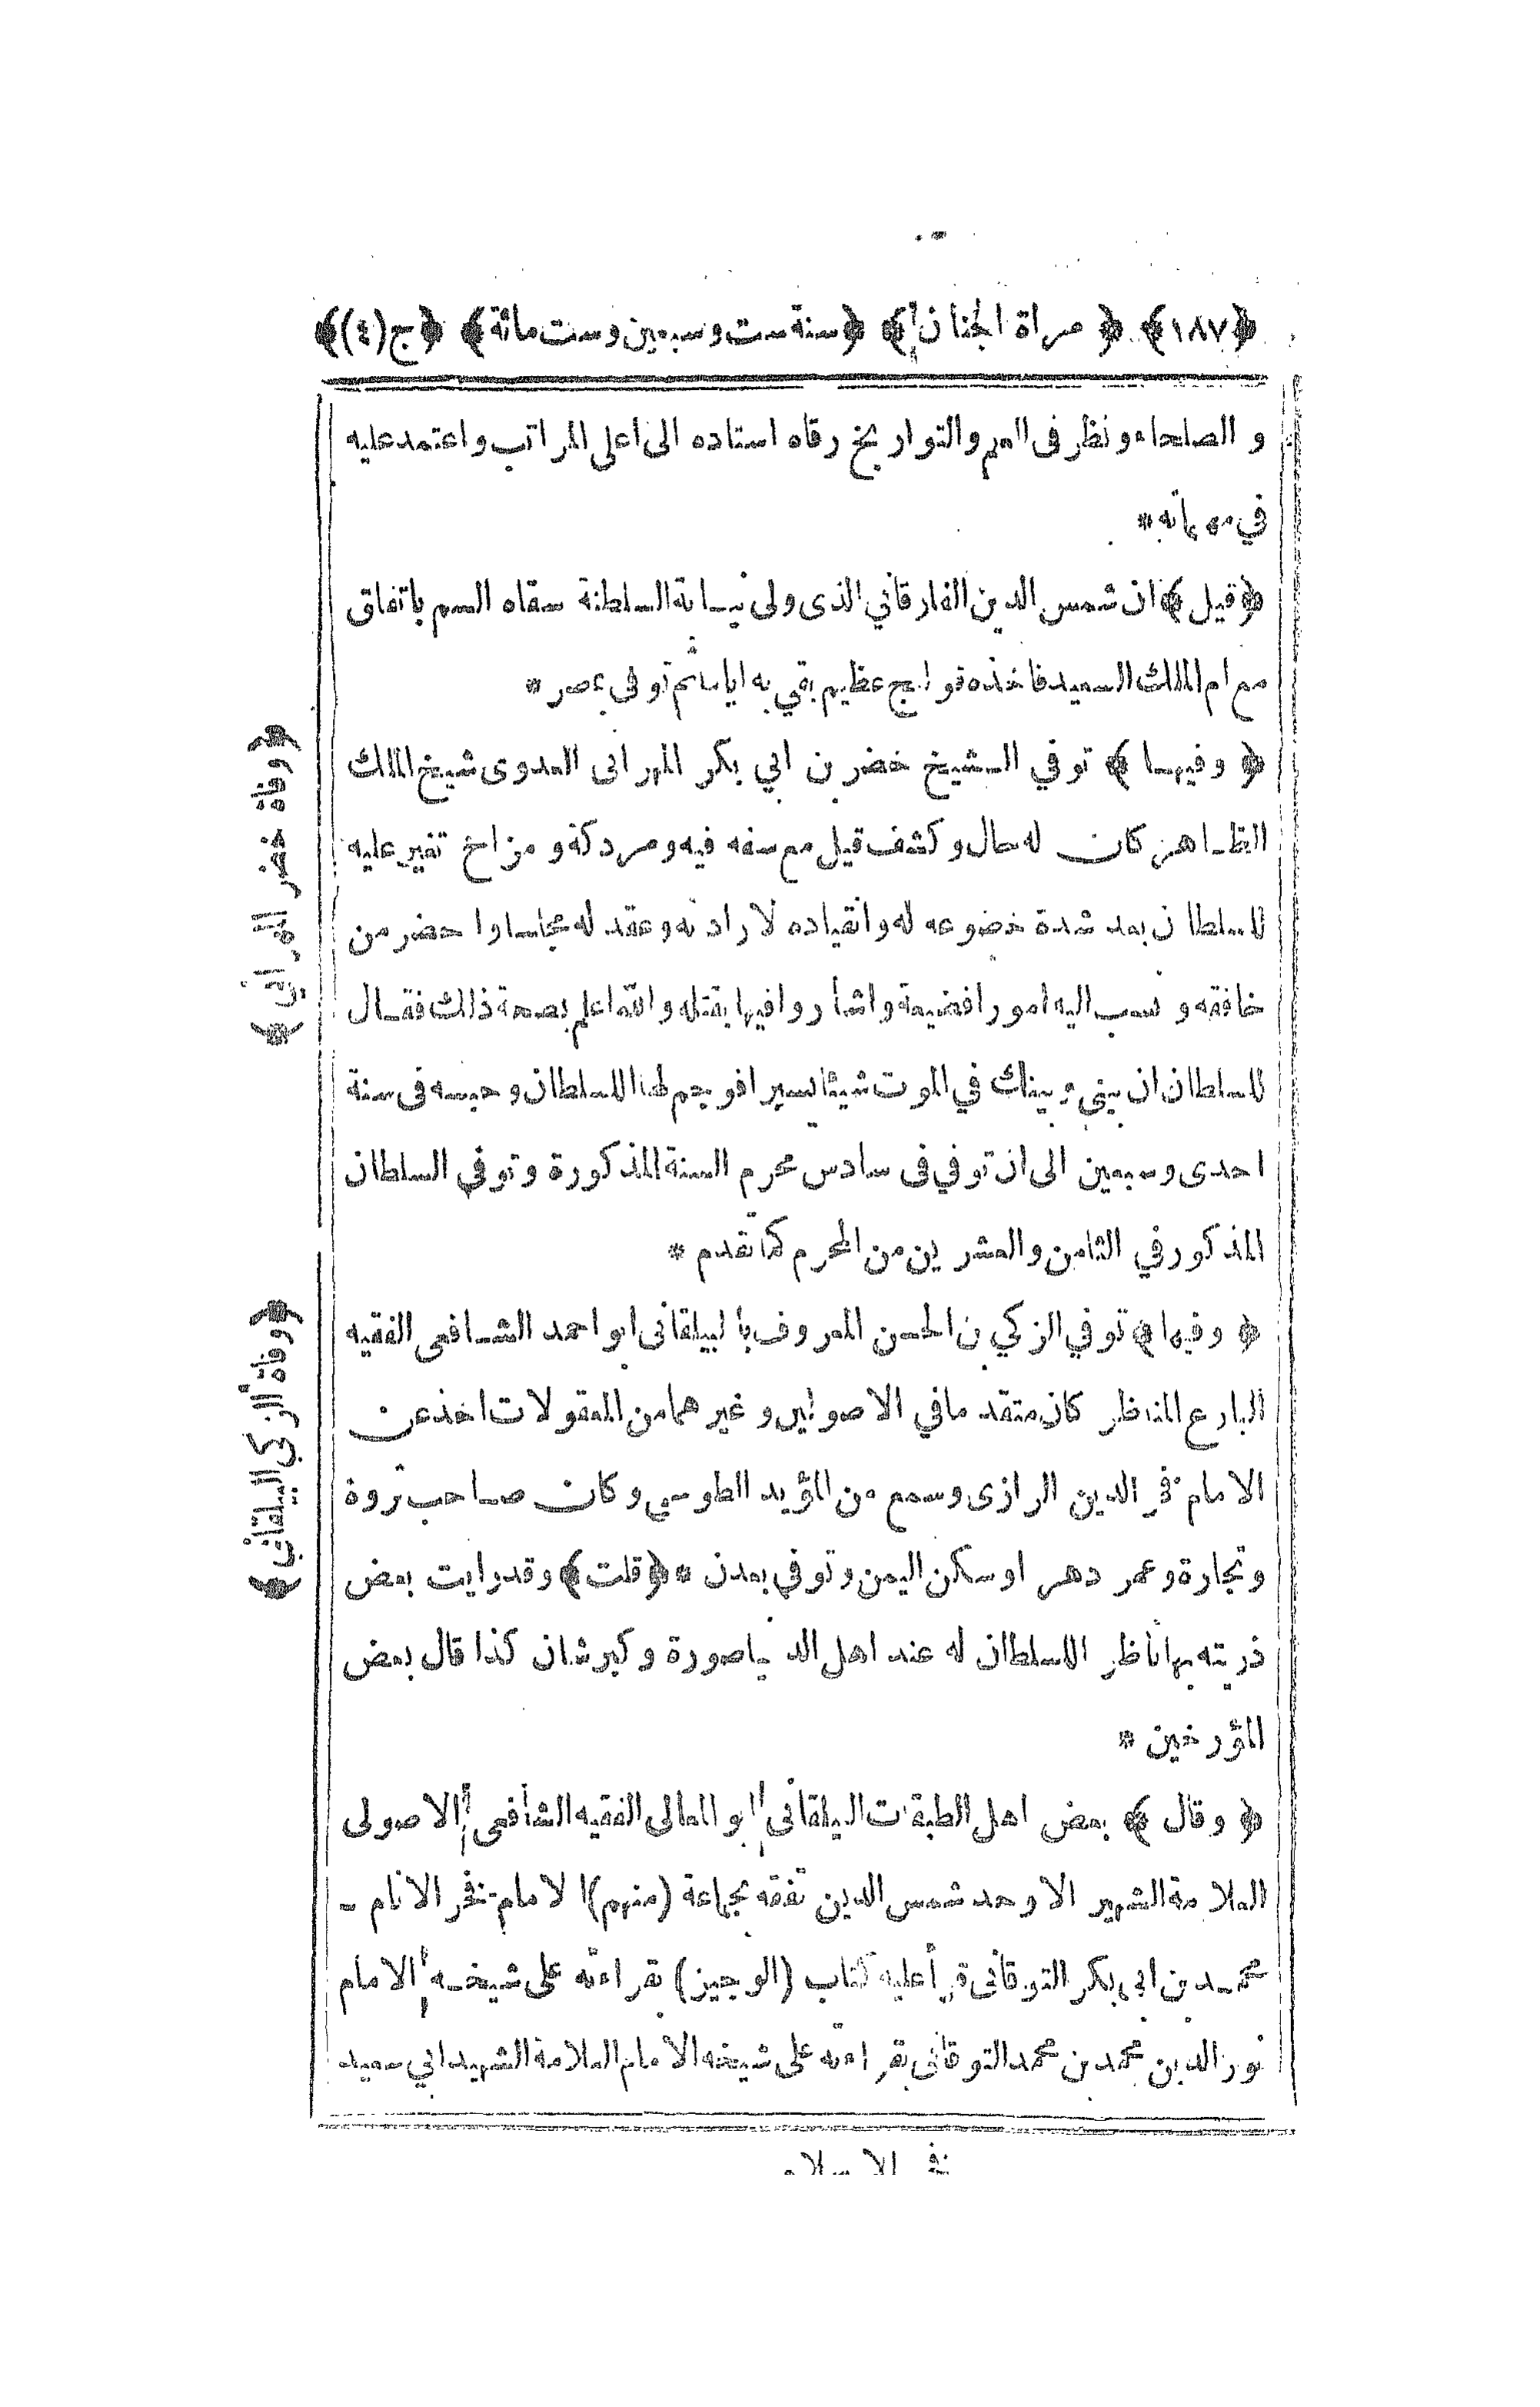 ﴿١٨٧﴾ ﴿مراة الجنان﴾ ﴿سنة ست وسبعين وست مائة﴾ ﴿ج(٤)﴾
و الصلحاء ونظر فى العلم والتواريخ رقاه استاده الى اعلى المراتب واعتمد عليه
في مهماته *
﴿قيل﴾ ان شمس الدين الفارقاني الذى ولى نيابة السلطنة سقاه السم باتفاق
مع ام الملك السعيد فاخذه قولنج عظيم بقي به اياما ثم توفى بمصر *
﴿وفيها﴾ توفي الشيخ خضر بن ابي بكر المهرانى العدوى شيخ الملك
الظاهر كان له حال وكشف قيل مع سفه فيه ومردكة ومزاح تغير عليه
السلطان بعد شدة خضوعه له وانقياده لارادته وعقد له مجلسا واحضر من
حاققه و نسب اليه امورا فضيعة واشاروا فيها بقتله والله اعلم بصحة ذلك فقال
للسلطان ان بيني وبينك في الموت شيئا يسيرا فوجم لها السلطان وحبسه فى سنة
احدى وسبعين الى ان توفي فى سادس محرم السنة المذكورة وتوفي السلطان
المذكور في الثامن والعشرين من المحرم كما تقدم *
﴿وفيها﴾ توفي الزكي بن الحسن المعروف بالبيلقانى ابو احمد الشافعى الفقيه
البارع المناظر كان متقدما في الاصولين وغيرهما من المعقولات اخذ عن
الامام فخر الدين الرازى وسمع من المؤيد الطوسي وكان صاحب ثروة
وتجارة وعمر دهرا وسكن اليمن وتوفي بعدن * ﴿قلت﴾ وقد رايت بعض
ذريته بها ناظر السلطان له عند اهل الدنيا صورة وكبر شان كذا قال بعض
المؤرخين *
﴿وقال﴾ بعض اهل الطبقات البيلقانى ابو المعالى الفقيه الشافعى الاصولى
العلامة الشهير الاوحد شمس الدين تفقه بجماعة (منهم) الامام فخر الانام -
محمد بن ابى بكر التوقانى قرأ عليه كتاب (الوجيز) بقراءته على شيخه الامام
نور الدين محمد بن محمد التوقانى بقراءته على شيخه الامام العلامة الشهيد ابي سعيد
فخر الاسلام
﴿وفاة خضر المهراني﴾
﴿وفاة الزكي البيلقاني﴾